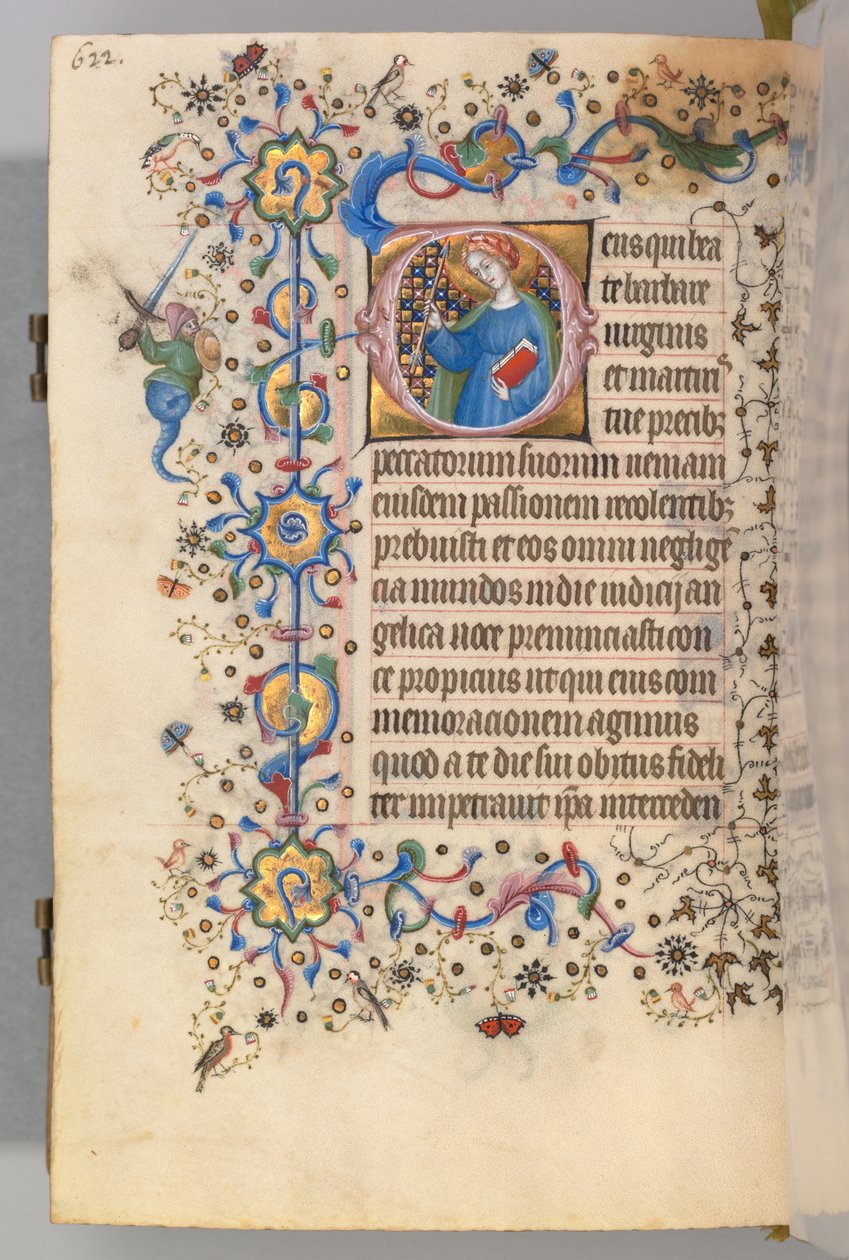 622.
Deus qui bea
te barbare
uirginis
et martiris
tue precibꝫ
peccatorum suorum ueniam
eiusdem passionem recolentibꝫ
prebuisti et eos omni neglige̅
cia mundos in die iudicij an
gelica uoce prenunciasti con
ce propicius ut qui eius com
memoracionem agimus
quod a te die sui obitus fideli
ter impetrauit ip̅a interceden